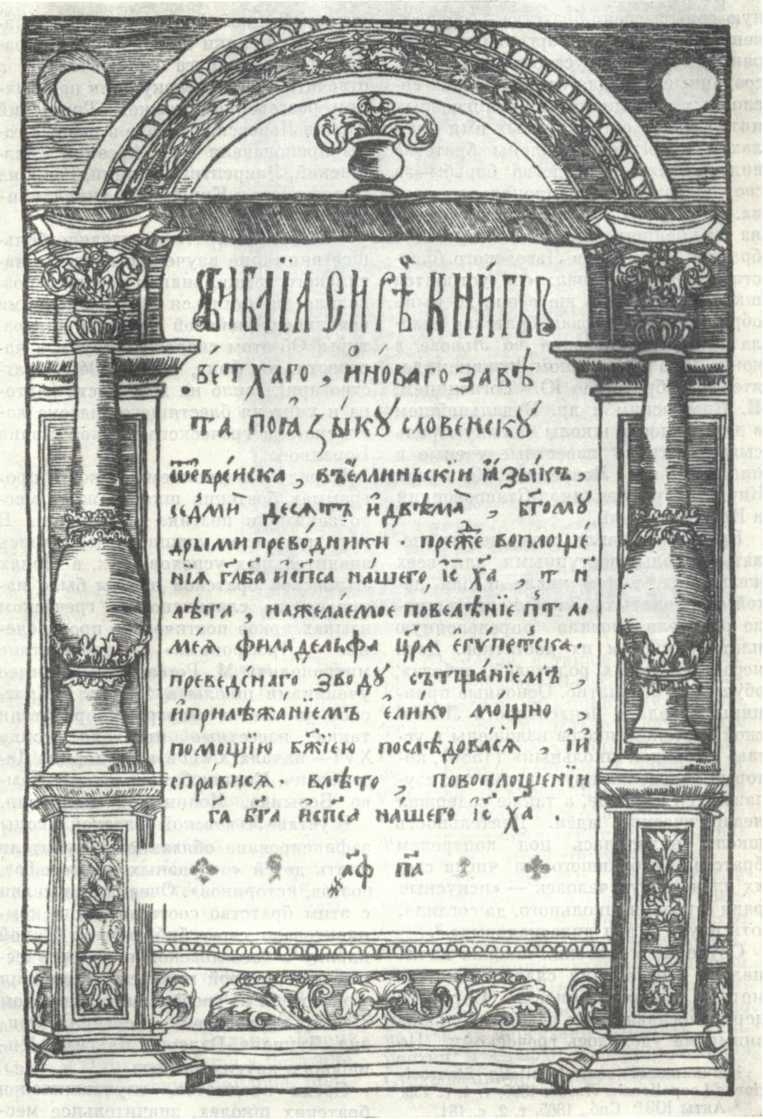 БИБЛІА СИРѢЧЬ КНИГЫ
ВЕТХАГО, И НОВАГО ЗАВѢ
ТА ПОꙖЗЫКУ СЛОВЕНСКУ
ѿеврейска, въеллиньскіи ꙗзыкъ,
седмидесятъ идвѣма, бг҃ому
дрыми преводники. преже воплоще
нїѧ га҃ ба҃ исп҃са нашего, іс҃ ха҃, т҃
лѣта, нажелаемое повелѣнїе птоло
меѧ филаделѳа цр҃ѧ египетска,
преведенаго зводу сътщанїемъ,
иприлѣжанїемъ елико мощно,
помощїю бж҃їею послѣдовасѧ, и
справисѧ. влѣто, повоплощенїи
га҃ бг҃а исп҃са нашего іс҃ ха҃.
҂аф па҃